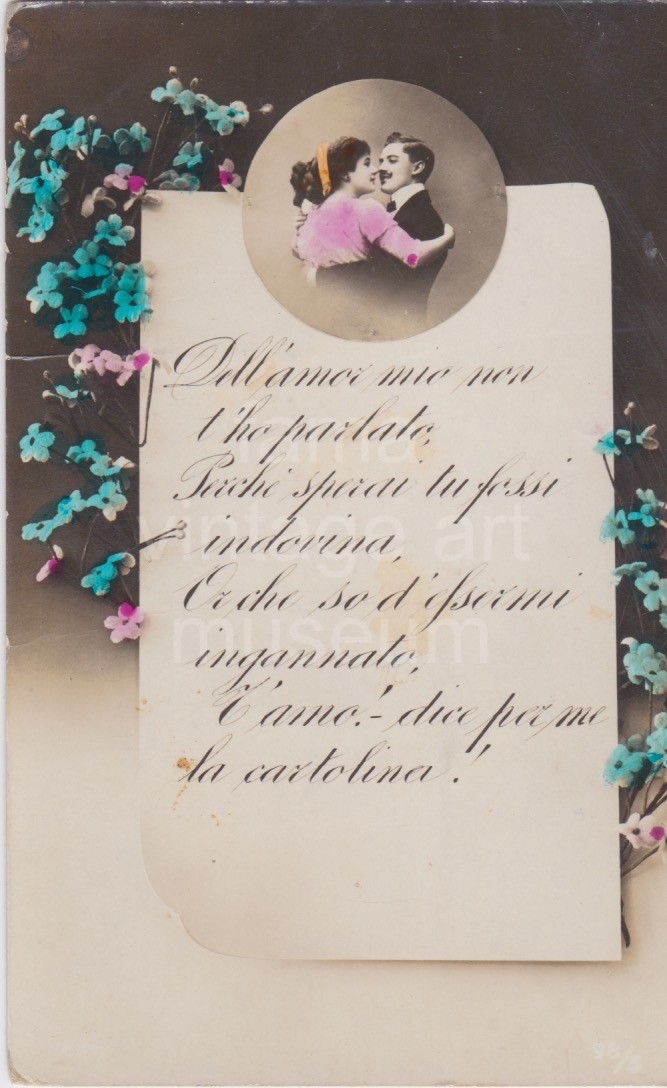 Dell'amor mio non
t'ho parlato,
Perchè sperai tu fossi
indovina,
Or che so d'essermi
ingannato,
T'amo! - dice per me
la cartolina!
vintage art
museum